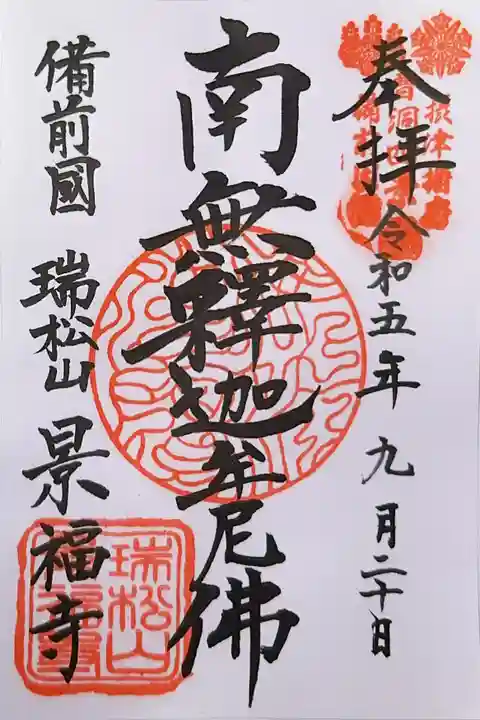 奉拝 令和五年 九月二十日
南無釋迦牟尼佛
備前國 瑞松山 景福寺
瑞松山
景福寺